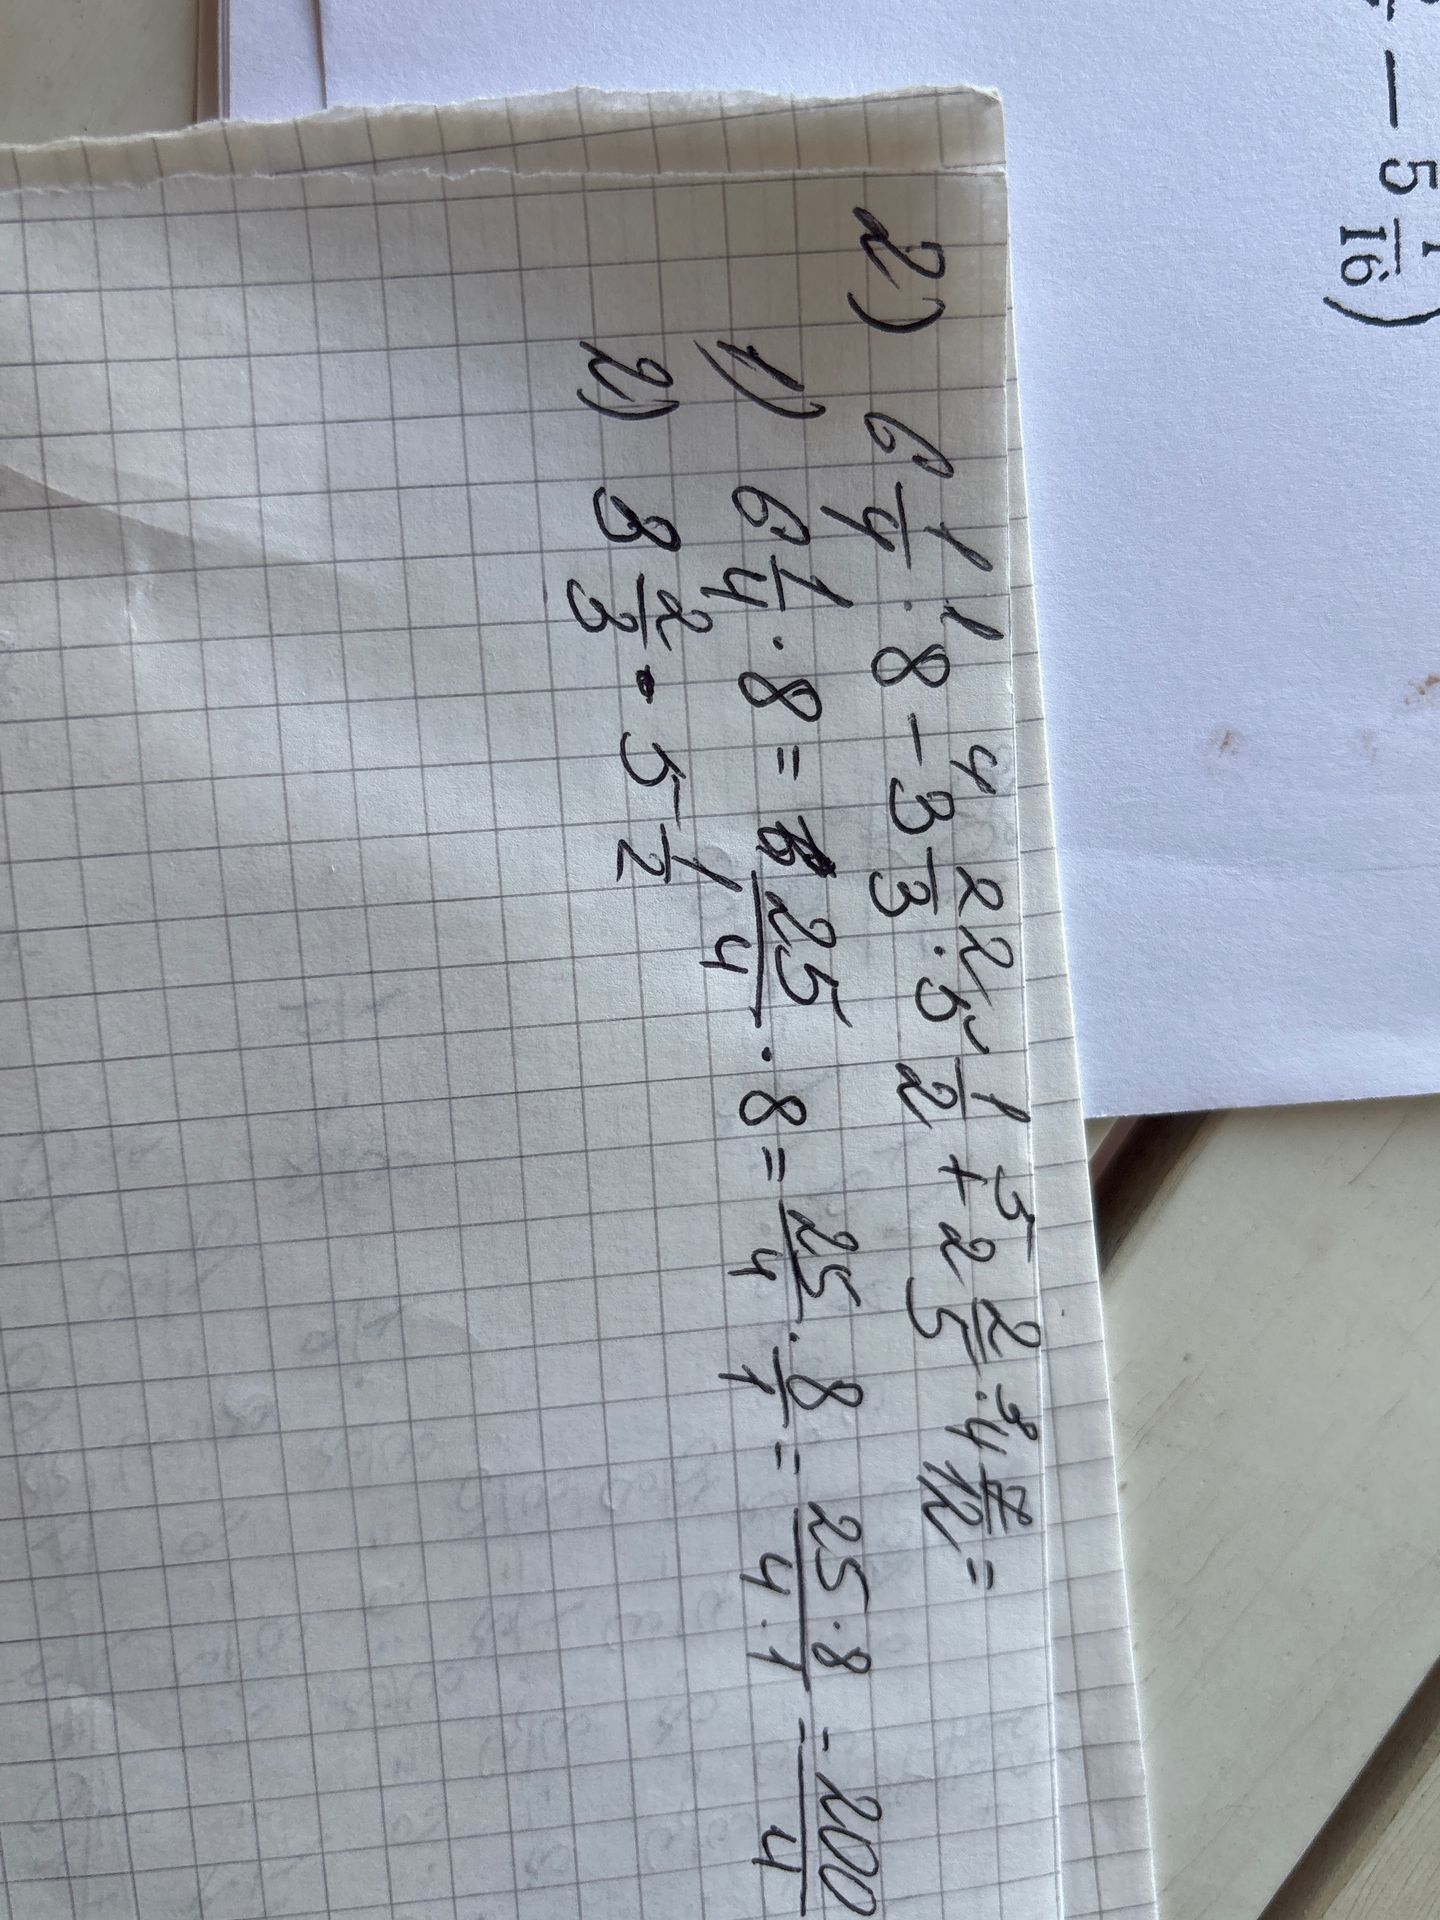 - 5 1/16)
2) 6 1/4 ·¹ 8 -⁴ 3 2/3 ·² 5 1/2 +⁵ 2 2/5 ·³ 4 7/12 =
1) 6 1/4 · 8 = 25/4 · 8 = 25/4 · 8/1 = 25·8/4·1 = 200/4
2) 3 2/3 · 5 1/2